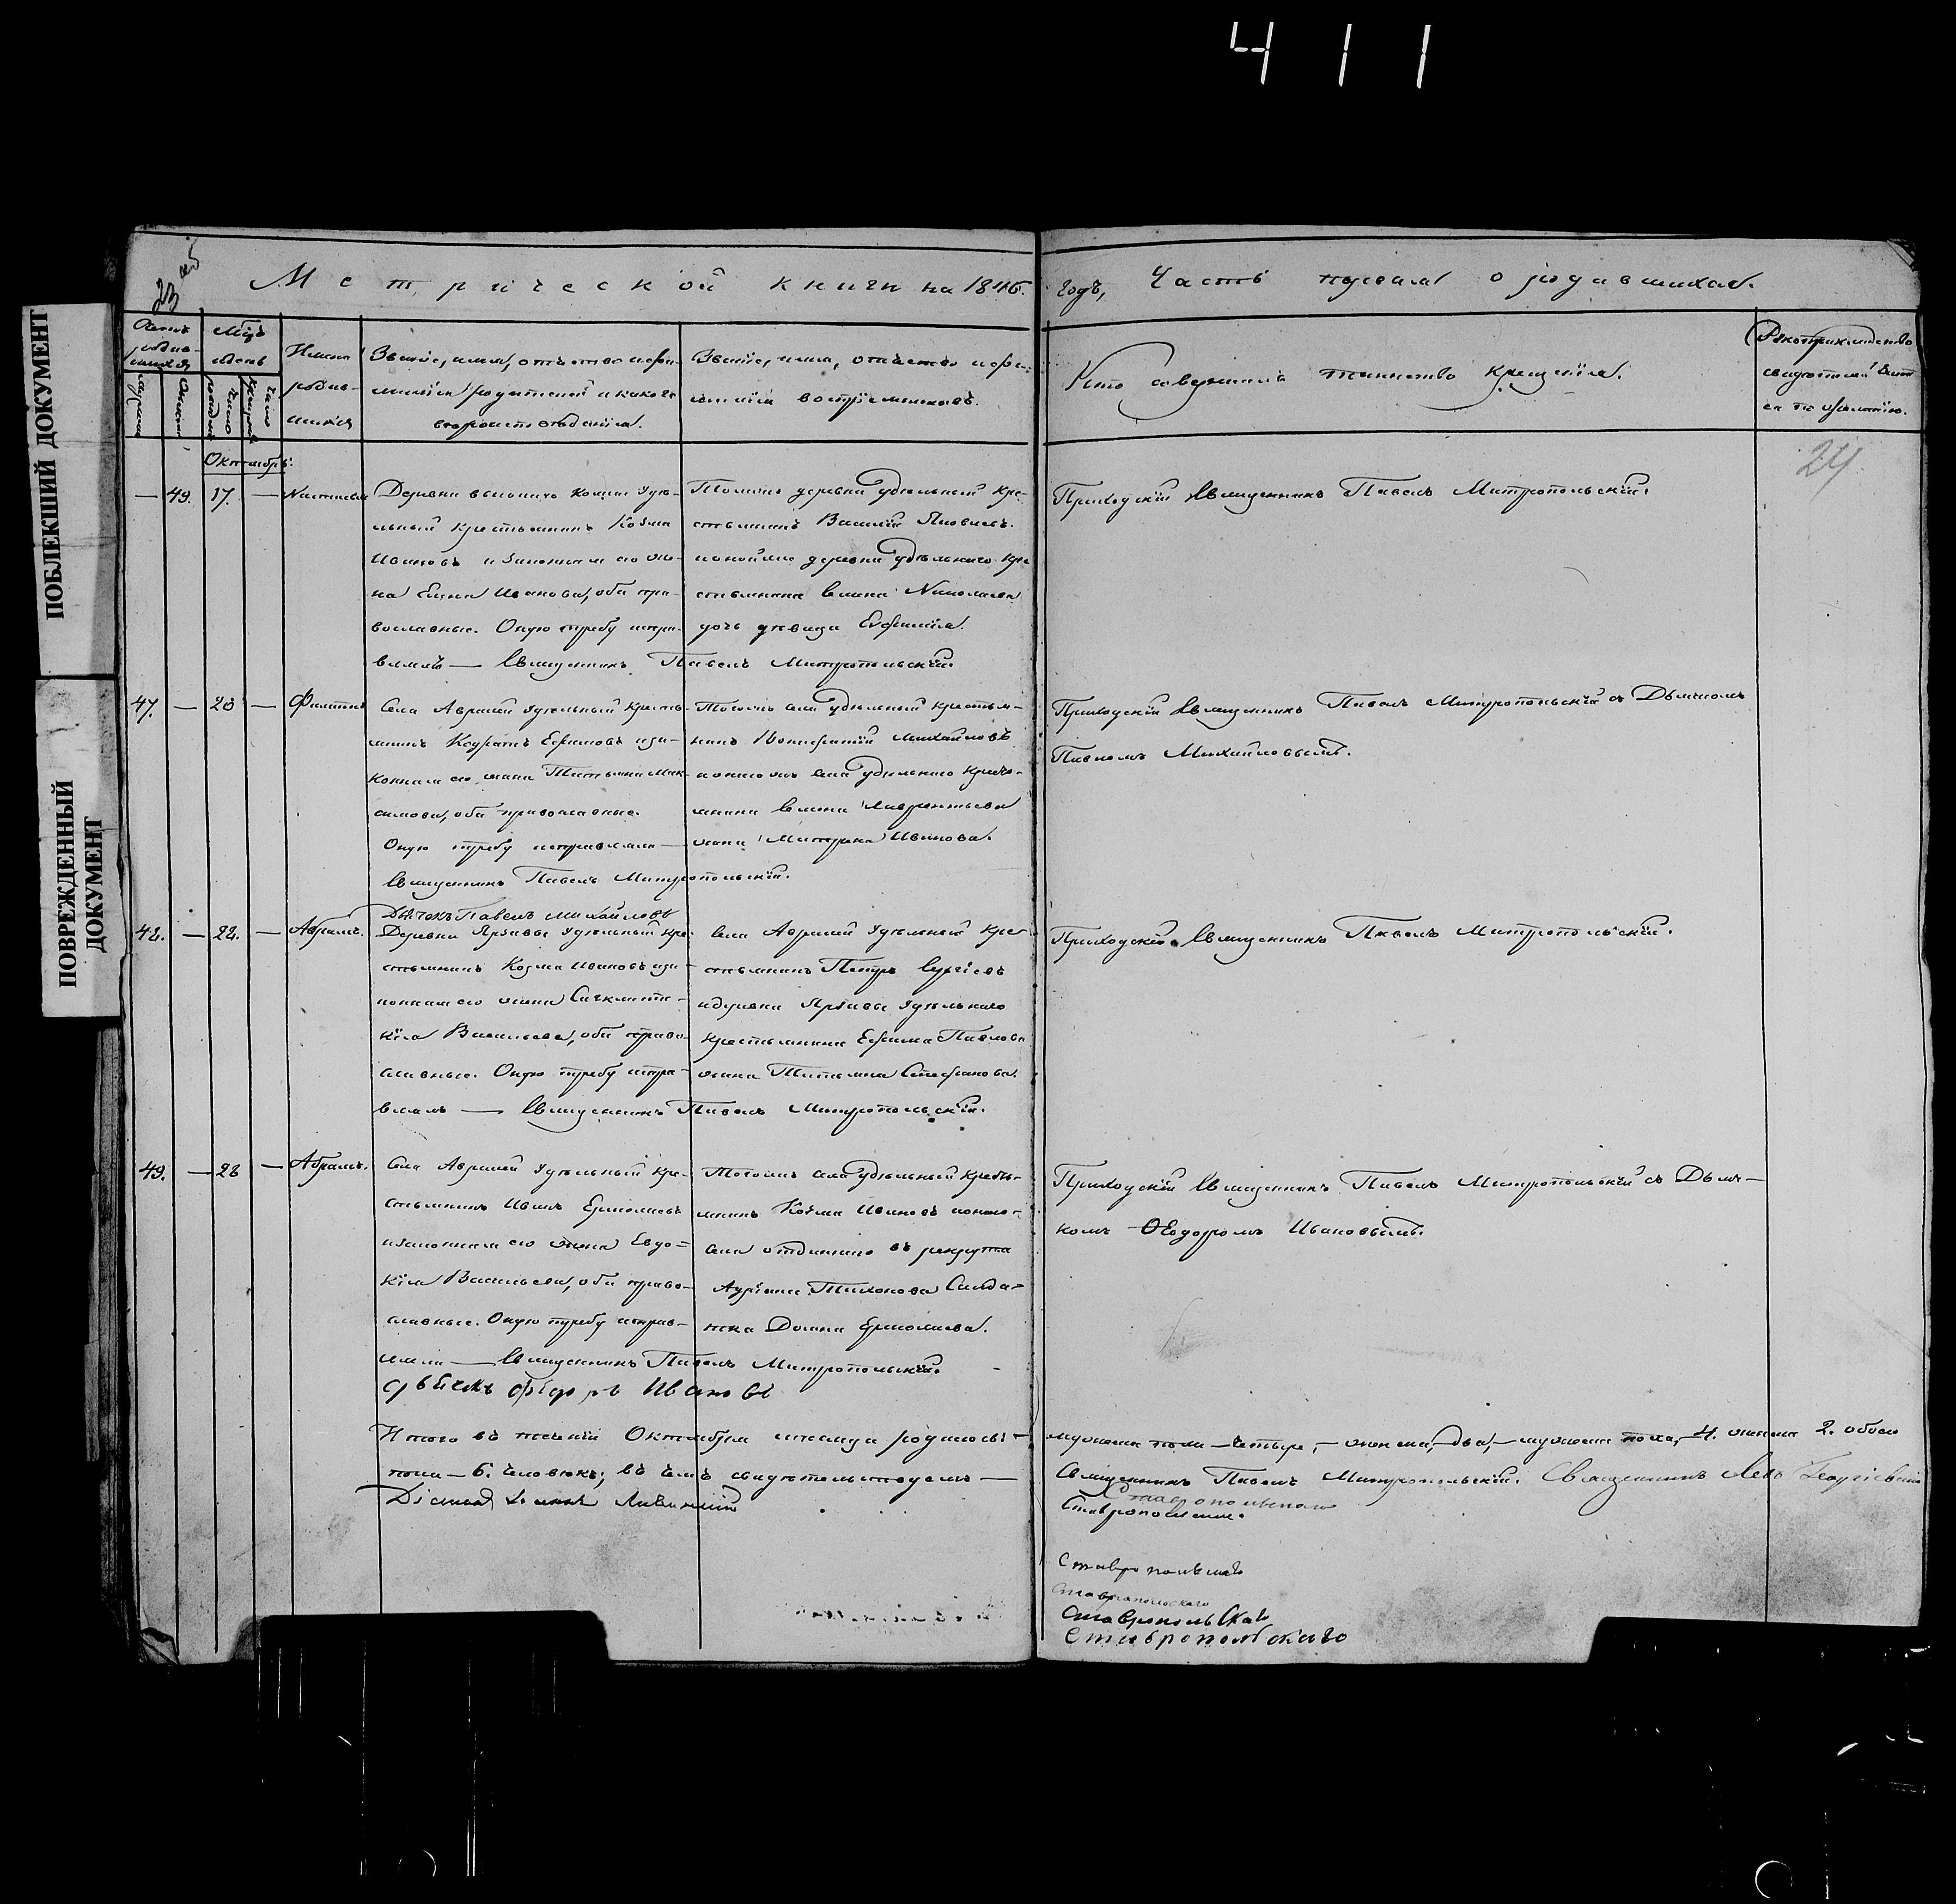 411
ПОБЛЕКШИЙ ДОКУМЕНТ
ПОВРЕЖДЕННЫЙ
ДОКУМЕНТ
23
Метрической книги на 1846.
годъ, Часть первая о родившихся.
Имена
родив-
шихся
Званіе, имя, отчество и фа-
милія родителей и какого
вѣроисповѣданія.
Званіе, имя, отчество и фа-
милія воспріемниковъ.
Кто совершалъ таинство крещенія.
Рукоприкладство
свидѣтелей
по желанію.
24
Октябрь:
— 49. 17. —
Деревни Удѣ-
льный крестьянинъ Козма
Ивановъ и законная его же-
на Елена Иванова, оба пра-
вославные. Оную требу испра-
влялъ — Священникъ Павелъ Митропольскій.
Тойже деревни удѣльный кре-
стьянинъ Василій Яковлевъ.
деревни удѣльнаго кре-
стьянина Николаева
дочь дѣвица Евфимія.
Приходскій Священникъ Павелъ Митропольскій.
47. — 20 — Филиппъ
Села Аврамей Удѣльный кресть-
янинъ Кодратъ Ефимовъ и за-
конная его жена Татьяна Мак-
симова, оба православные.
Оную требу исправляли —
Священникъ Павелъ Митропольскій.
Дьячекъ Павелъ Михайловъ
Тогожъ села удѣльный крестья-
нинъ Вонифатій Михайловъ
села удѣльнаго кресть-
янина Лаврентьева
жена Матрена Иванова.
Приходскій Священникъ Павелъ Митропольскій съ Дьячкомъ
Павломъ Михайловымъ.
48. — 22. — Абрамъ.
Деревни Удѣльный кре-
стьянинъ Козма Ивановъ и за-
конная его жена
Васильева, оба право-
славные. Оную требу испра-
влялъ — Священникъ Павелъ Митропольскій.
Села Аврамей Удѣльный кре-
стьянинъ Петръ Сергіевъ
и деревни Удѣльнаго
крестьянина Ефима Павлова
жена Татьяна Стефанова.
Приходскій Священникъ Павелъ Митропольскій.
49. — 28 — Абрамъ.
Села Аврамей Удѣльный кре-
стьянинъ Иванъ Ермолаевъ
и законная его жена Евдо-
кія Васильева, оба право-
славные. Оную требу исправ-
ляли — Священникъ Павелъ Митропольскій.
дьячекъ Фіодоръ Ивановъ
Тогожъ села удѣльный кресть-
янинъ Козма Ивановъ
села отданнаго въ рекруты
Адріана Тихонова Солда-
тка Домна Ермолаева.
Приходскій Священникъ Павелъ Митропольскій съ Дьяч-
комъ Ѳеодоромъ Ивановымъ.
Итого въ теченіи Октября месяца родилось:
мужеска пола — четыре, — женска, два, — мужеска пола, — 4. женска 2. обоего
пола — 6. человѣкъ; въ чемъ свидѣтельствуемъ —
Священникъ Павелъ Митропольскій. Священникъ Левъ Георгіевскій
Діаконъ
Ставропольскаго
Ставрополь
Ставропольскаго
Ставропольскаго
Ставропольскаго
Ставропольскаго